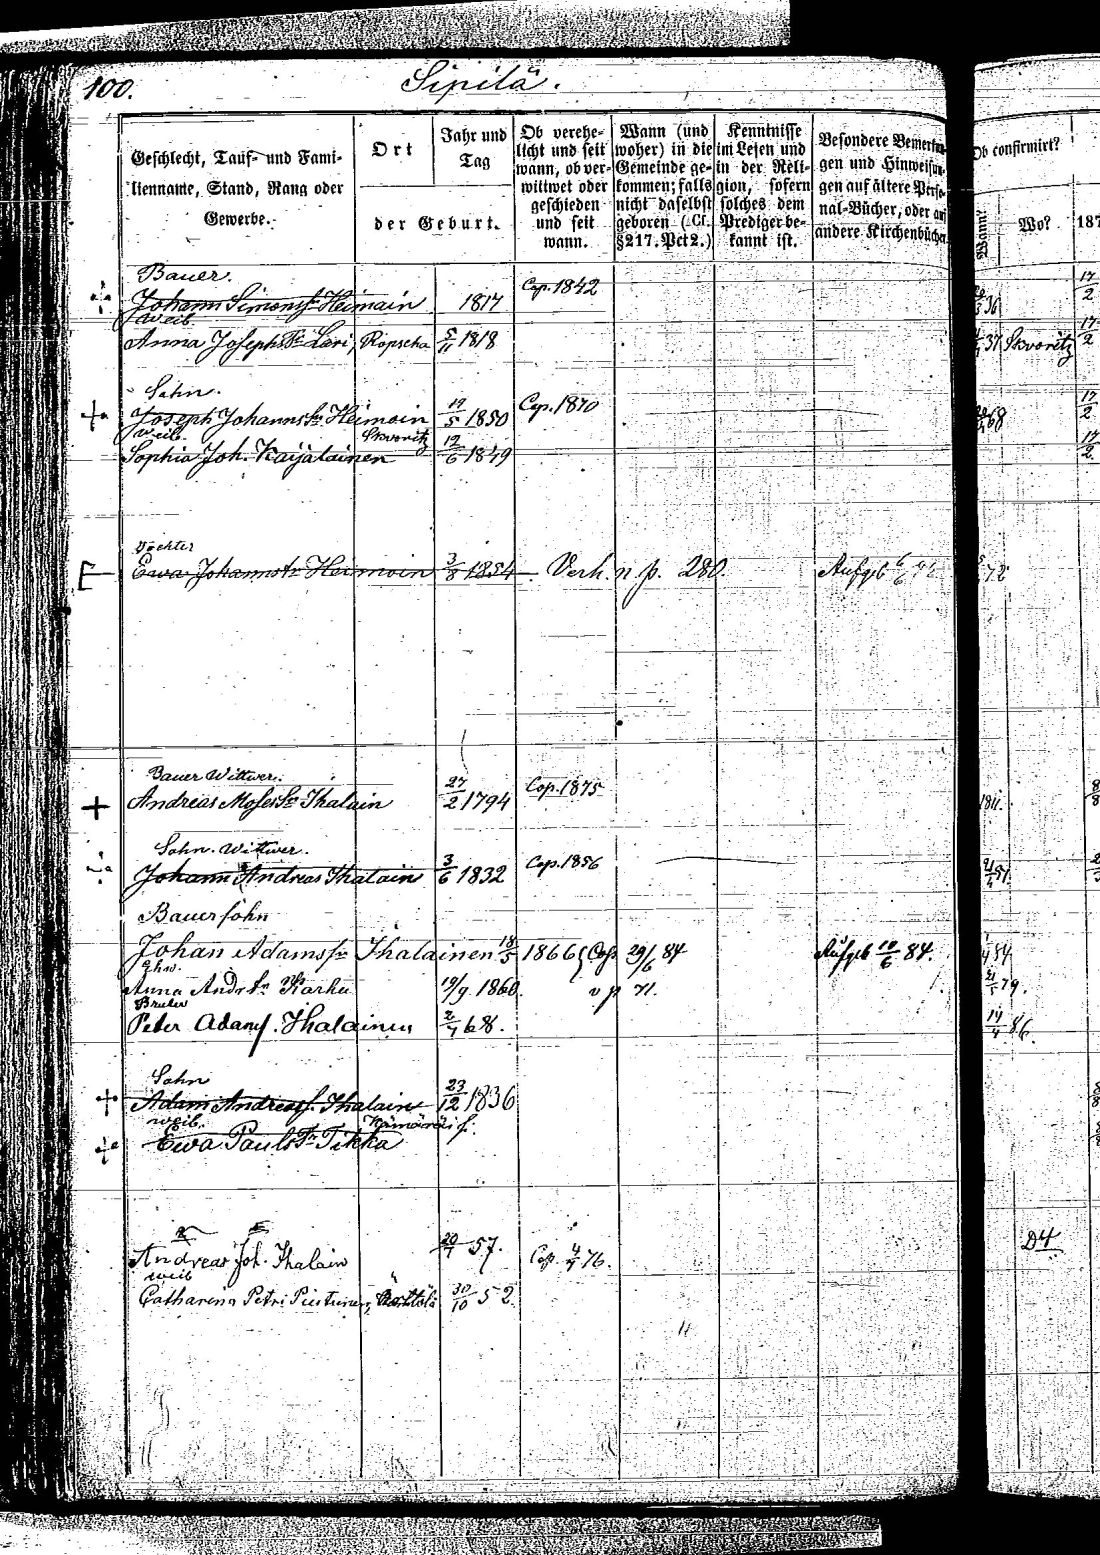 100. Sipilä.
Geschlecht, Tauf- und Fami-
lienname, Stand, Rang oder
Gewerbe.
Ort
Jahr und
Tag
der Geburt.
Ob verehe-
licht und seit
wann, ob ver-
wittwet oder
geschieden
und seit
wann.
Wann (und
woher) in die
Gemeinde ge-
kommen; falls
nicht daselbst
geboren (Cf.
§217. Pct 2.)
Kenntnisse
im Lesen und
in der Reli-
gion, sofern
solches dem
Prediger be-
kannt ist.
Besondere Bemerkun-
gen und Hinweisun-
gen auf ältere Perso-
nal-Bücher, oder auf
andere Kirchenbücher
Ob confirmirt?
Wann?
Wo?
187
Bauer.
Johann Simonsf. Heimain 1817 Cop. 1842 36 17/2
Weib.
Anna Josephs Tr. Lari, Ropscha 5/11 1818 37 Skvoritz 17/2
Sohn.
Joseph Johanns Sn. Heimain 19/5 1850 Cop. 1870 68 17/2
Weib. Skvoritz
Sophia Joh. Kaijalainen 12/6 1849 17/2
Tochter
Ewa Johannstr Heimoin 3/8 1854 Verh. n. p. 280. Aufgeb 72
Bauer Wittwer.
Andreas Moses Sn Ihalain 27/2 1794 Cop. 1875 1811. 8/8
Sohn. Wittwer.
Johann Andreas Ihalain 3/6 1832 Cop. 1856 51
Bauersohn
Johan Adamsfn Ihalainen 18/5 1866 Cop 29/6 84 Aufgeb 10/6 84. 84
Anna Andr. tr. Karhu 19/9 1860. v p 71. 79.
Bruder
Peter Adamf. Ihalainen 2/4 68. 14/4 86.
Sohn
Adam Andreasf. Ihalain 23/12 1836
Weib. Kämäräi f.
Ewa Pauls Tr. Tikka
Andreas Joh. Ihalain 57. Cop. 4/4 76. D4.
Weib
Catharina Petri Piistunen, 30/10 52.